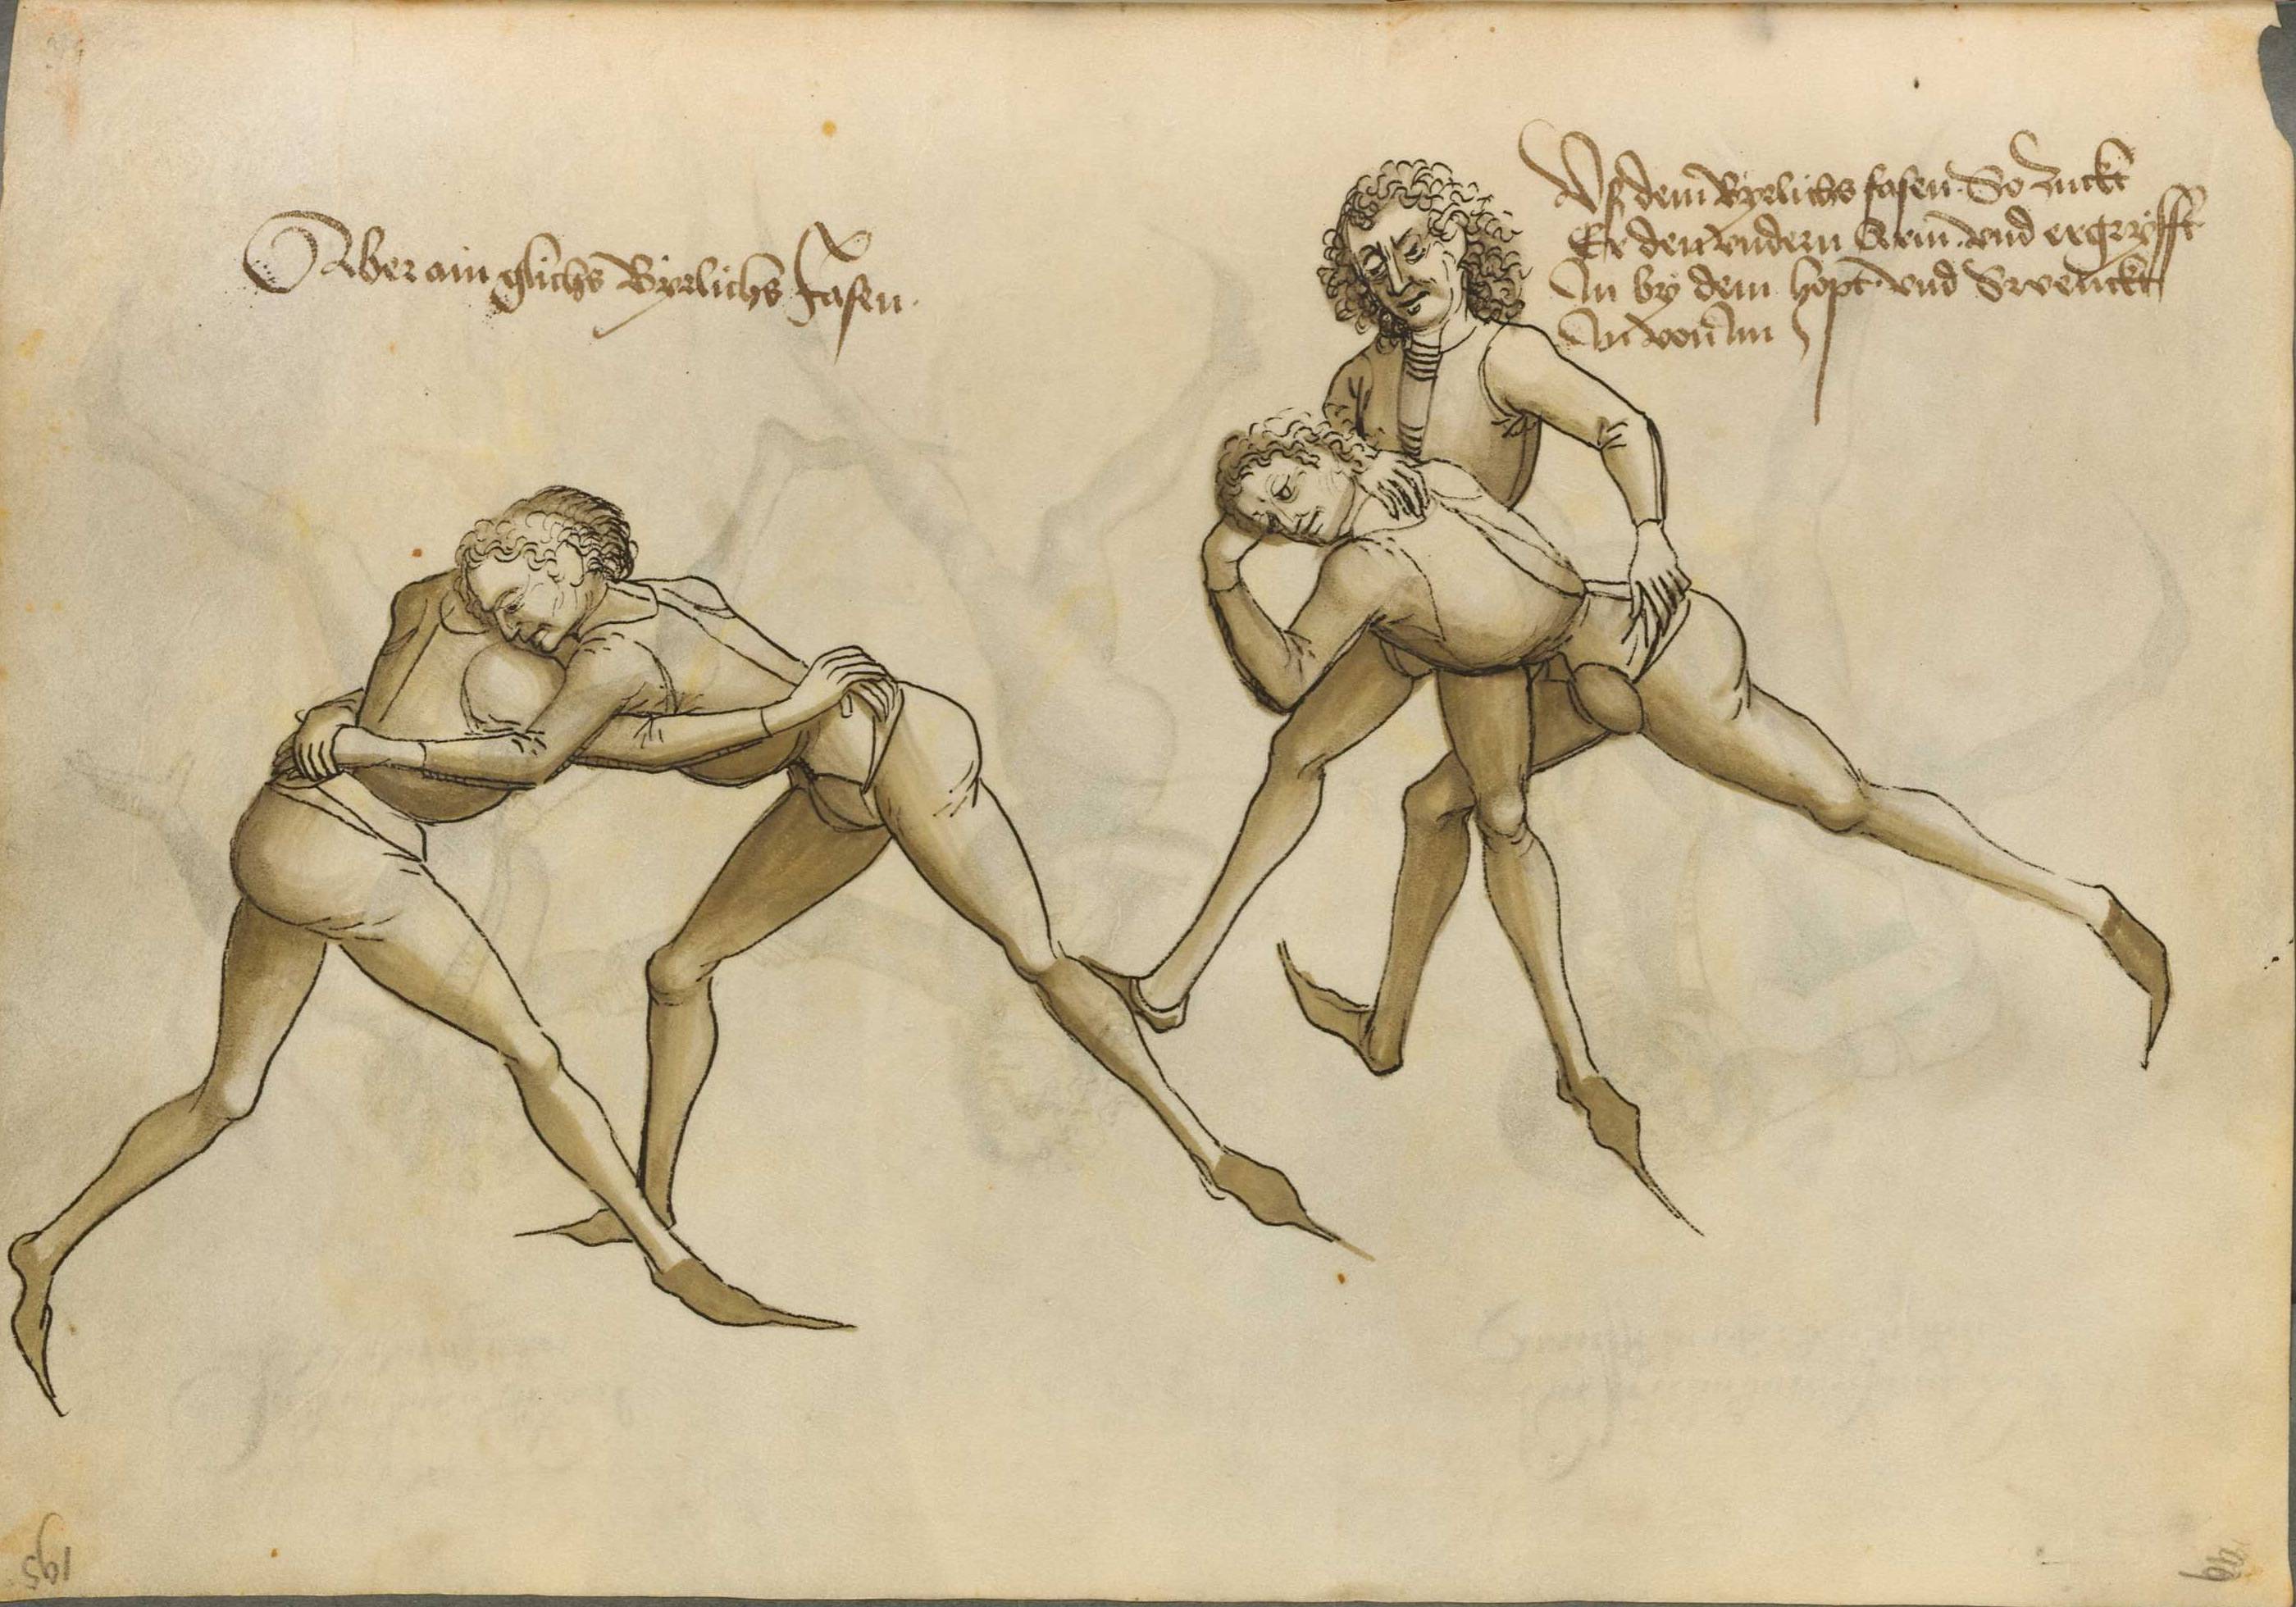 Aber ain glichs Byrlichs fasen.
Vs dem Byrlichs fasen So zuckt
Er den undern Arm. vnd ergryfft
In by dem hopt. vnd Swenckt
In von Im
195